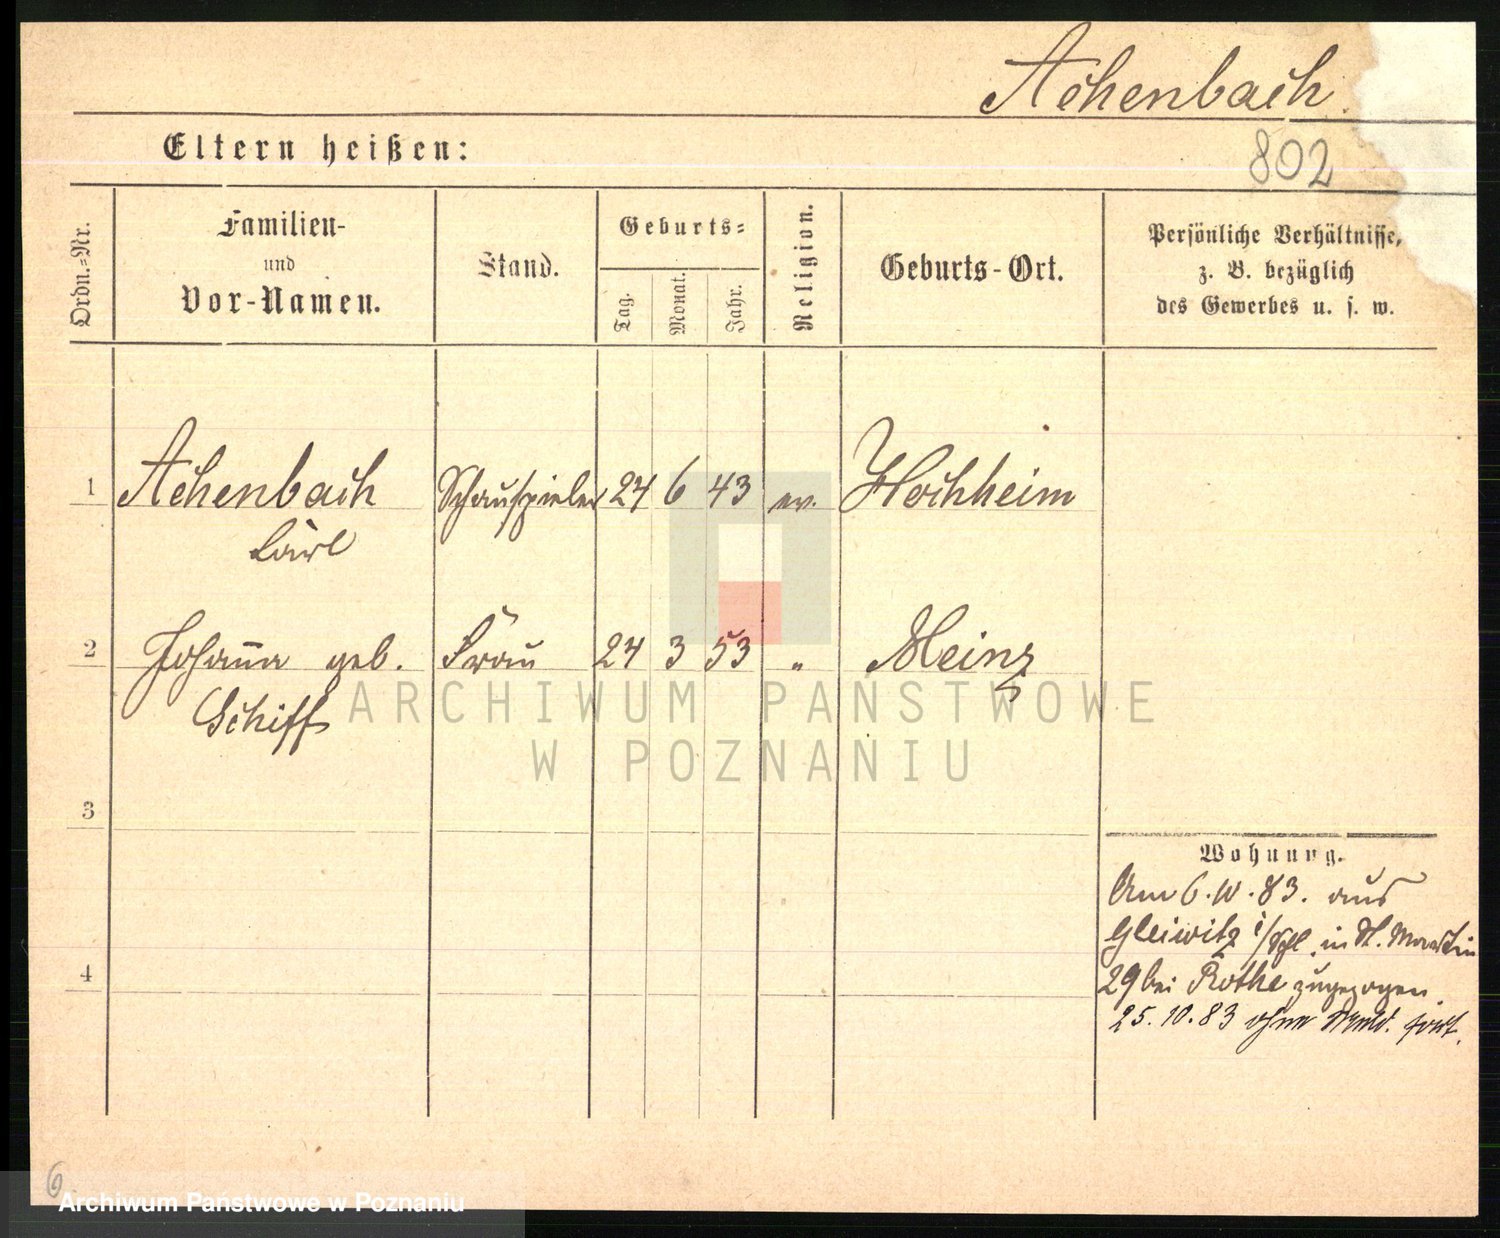 Achenbach
Eltern heißen:
802
Ordn.=Nr.
Familien-
und
Vor-Namen.
Stand.
Geburts=
Tag.
Monat.
Jahr.
Religion.
Geburts-Ort.
Persönliche Verhältnisse,
z. B. bezüglich
des Gewerbes u. s. w.
1 Achenbach Schauspieler 24 6 43 ev. Hochheim
Carl
2 Johanna geb. Frau 24 3 53 " Meinz
Schiff
ARCHIWUM PAŃSTWOWE
W POZNANIU
3
Wohnung.
Am 6.10.83. aus
Gleiwitz i/Schl. in St. Martin
4
29 bei Rothe zugezogen
25.10.83 ohne Meld. fort.
6
Archiwum Państwowe w Poznaniu